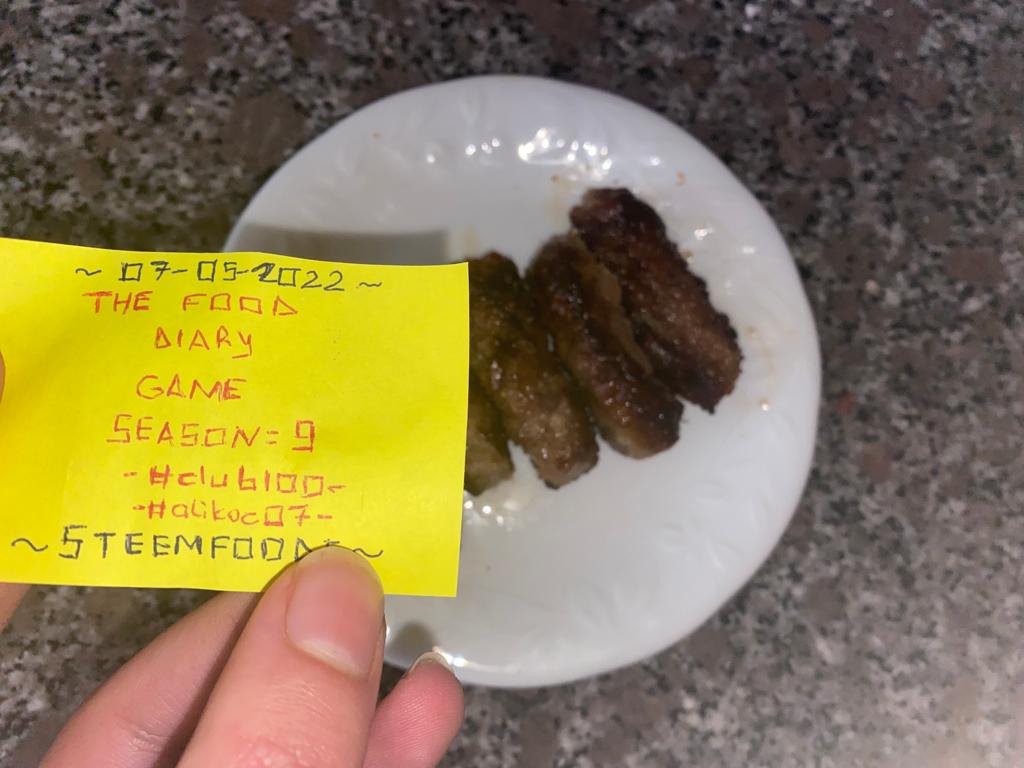 ~ 07-05-2022 ~
THE FOOD
DIARY
GAME
SEASON=9
-#club100-
-#alikoc07-
~STEEMFOODS~